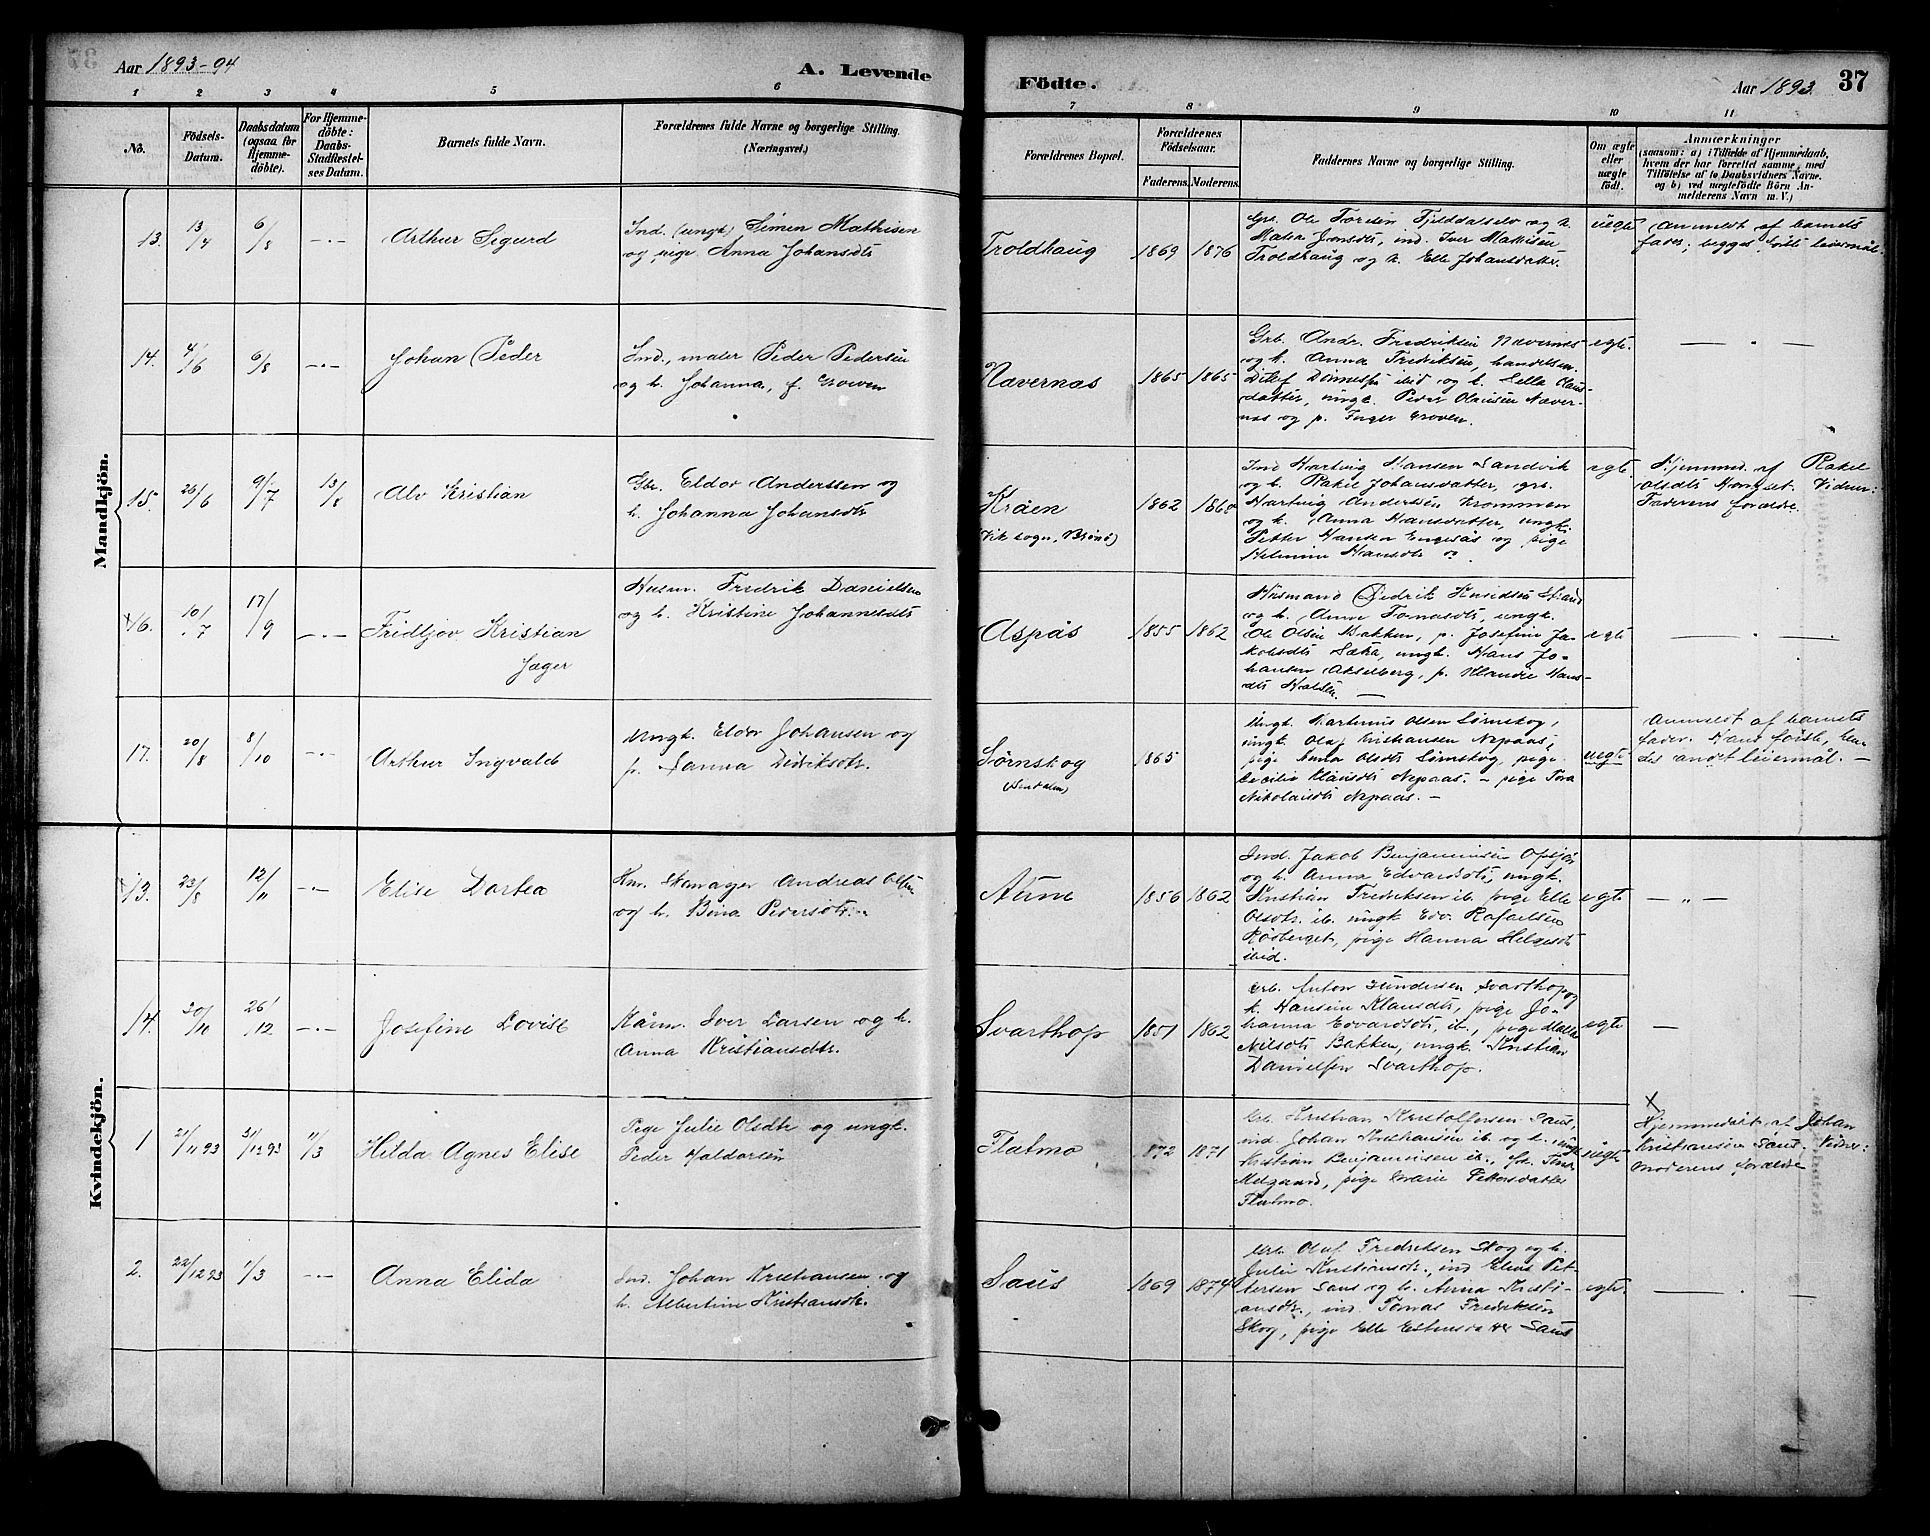 Aar 1893-94
A. Levende
Födte.
Aar 1893.
37
1 2 3 4 5 6 7 8 9 10 11
No.
Födsels-
Datum.
Daabsdatum
(ogsaa for
Hjemme-
döbte).
For Hjemme-
döbte:
Daabs-
Stadfæstel-
ses Datum.
Barnets fulde Navn.
Forældrenes fulde Navne og borgerlige Stilling.
(Næringsvei.)
Forældrenes Bopæl.
Forældrenes
Födselsaar.
Faderens. Moderens.
Faddernes Navne og borgerlige Stilling.
Om ægte
eller
uægte
födt.
Anmærkninger
(saasom: a) i Tilfælde af Hjemmedaab,
hvem der har forrettet samme, med
Tilföielse af to Daabsvidners Navne,
og b) ved uægtefödte Börn An-
melderens Navn m. V.)
Mandkjön.
13. 13/4 6/8 -"- Arthur Sigurd
Ind. (ungk) Simen Mathisen
og pige Anna Johansdtr
Troldhaug 1869 1876
Gbr. Ole Toresen Fjelddalselv og h.
Malea Jonsdtr, ind. Iver Mathisen
Troldhaug og h. Elle Johansdatter.
uegte
Anmeldt af barnets
fader; begges første leiermål.
14. 4/6 6/8 -"- Johan Peder
Ind., maler Peder Pedersen
og h. Johanna, f. Groven
Navernas 1865 1865
Grb. Andr. Fredriksen Nævernes
og h. Anna Fredriksen, handelsm.
Ditlef Dønnesfor ibid og h. Lella Claus-
datter, ungk. Peder Olausen Næver-
nes og p. Inger Groven.
egte. — " —
15. 26/6 9/7 13/8 Alv Kristian
Gbr. Eldor Anderssen og
h. Johanna Johansdtr
Kråen
(Vik sogn, Brønø)
1862 1860
Ind Hartvig Hansen Sandvik
og h. Rakel Johansdatter, grb.
Hartvig Andersen Krommen
og h. Anna Hansdatter, ungk.
Petter Hansen Engesås og pige
Helmine Hansdtr
egte.
Hjemmed. af Rakel
Olsdtr Horsset. Vidner:
Faderens forældre.
16. 10/7 17/9 -"- Fridtjov Kristian
Jæger
Husm. Fredrik Danielsen
og h. Kristine Johannesdtr
Aspås 1855 1862
Husmand Didrik Knudsen Strand
og h. Anne Tomasdtr, ungk.
Ole Olsen Bakken, p. Josefine Ja-
kobsdtr Sæta, ungk. Hans Jo-
hansen Akselberg, p. Klaudie Hans-
dtr Holsen. —
egte — " —
17. 20/8 8/10 -"- Arthur Ingvald
Ungk. Eldor Johansen og
p. Sanna Didriksdtr.
Sørnskog
1865
Ungk. Martinus Olsen Sørnskog,
ungk. Ole Kristiansen Nepaas,
pige Anna Olsdtr Sørnskog, pige
Cecilie Klausdtr Nepaas. – pige Tora
Nikolaisdtr Nepaas. –
uegte
Anmeldt af barnets
fader. Hans første, hen-
des andet leiermål. –
Kvindekjön.
13. 23/8 12/11 -"- Elise Dortea
Km. Skomager Andreas Olsen
og h. Bina Pedersdtr.
Aune 1856 1862
Ind. Jakob Benjaminsen Opsjøn
og h. Anna Edvardsdtr, ungk.
Kristian Fredriksen ib. pige Elle
Olsdtr ib. ungk Edv. Rafaelsen
Rødberget, pige Hanna Helgesdtr
ibid.
egte — " —
14. 20/10 26/12 -"- Josefine Lovise
Kårm. Iver Larsen og h.
Anna Kristiansdtr.
Svarthop 1851 1862
Grb. Anton Gundersen Svarthop og
h. Hansine Klausdtr, pige Jo-
hanna Edvardsdtr, ib., pige Malla
Nilsdtr Bakken, ungk. Kristian
Danielsen Svarthop.
egte —
1 21/11 93 31/12 93 11/3 Hilda Agnes Elise
Pige Julie Olsdtr og ungk.
Peder Haldorsen
Flatmo 1872 1871
Grb. Kristian Kristoffersen Saus
ind. Johan Kristiansen ib. og h. ungk.
Kristian Benjaminsen ib., fr. Tina
Melgaard, pige Marie Pettersdatter
Flatmo.
uegte
x
Hjemmedøbt af Johan
Kristiansen Saus. Vidner:
Moderens forældre
2. 22/12 93 4/3 -"- Anna Elida
Ind. Johan Kristiansen og
h. Albertine Kristiansdtr.
Saus 1869 1874
Grb. Oluf Fredriksen Skog og h.
Julie Kristiansdtr., ind Elius Pet-
tersen Saus og h. Anna Kristi-
ansdtr., ind. Tomas Fredriksen
Skog, pige Elle Estensdatter Saus
egte. — " —